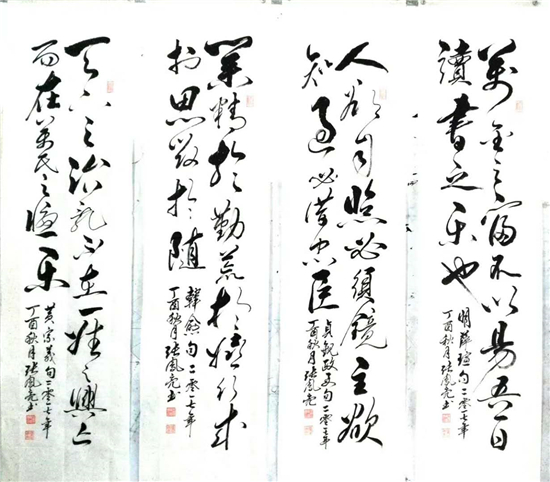 萬金之富不以易吾一日
讀書之乐也
明薛瑄句二零一七年
丁酉秋月张凤亮书
人欲自照必須鏡主欲
知過必借忠臣
貞觀政要句二零一七年
丁酉秋月张凤亮
業精於勤荒於嬉行成
於思毁於随
韓愈句二零一七年
丁酉秋月张凤亮书
天下之治乱不在一姓之興亡
而在萬民之憂乐
黄宗羲句二零一七年
丁酉秋月张凤亮书